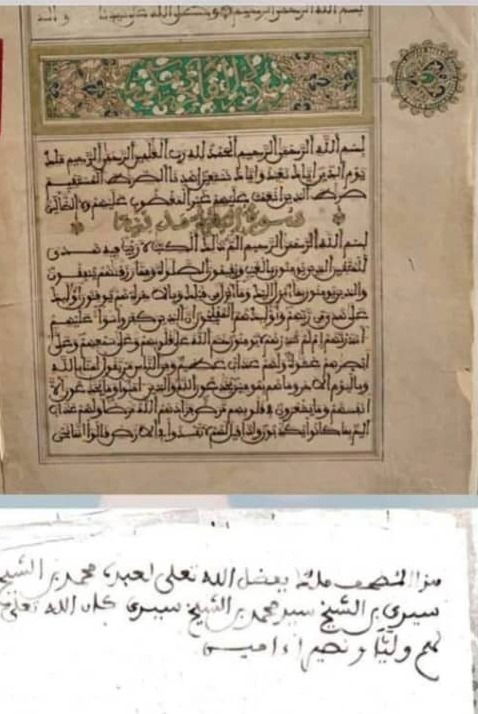 بسم الله الرحمن الرحيم
بسم الله الرحمن الرحيم الحمد لله رب العلمين الرحمن الرحيم ملك
يوم الدين اياك نعبد واياك نستعين اهدنا الصراط المستقيم
صراط الذين انعمت عليهم غير المغضوب عليهم ولا الضالين
سورة البقرة
بسم الله الرحمن الرحيم الم ذلك الكتب لا ريب فيه هدى
للمتقين الذين يومنون بالغيب ويقيمون الصلوة ومما رزقنهم ينفقون
والذين يومنون بما انزل اليك وما انزل من قبلك وبالاخرة هم يوقنون اوليك
على هدى من ربهم واوليك هم المفلحون ان الذين كفروا سواء عليهم
انذرتهم ام لم تنذرهم لا يومنون ختم الله على قلوبهم وعلى سمعهم وعلى
ابصرهم غشوة ولهم عذاب عظيم ومن الناس من يقول امنا بالله
وباليوم الاخر وما هم بمومنين يخدعون الله والذين امنوا وما يخدعون الا
انفسهم وما يشعرون في قلوبهم مرض فزادهم الله مرضا ولهم عذاب
اليم بما كانوا يكذبون واذا قيل لهم لا تفسدوا في الارض قالوا انما نحن
هذا المصحف ملكه بفضل الله تعلى لعبده محمد بن الشيخ
سيدي بن الشيخ سيد محمد بن الشيخ سيدي كان الله تعلى
لهم وليا و نصيرا ءامين